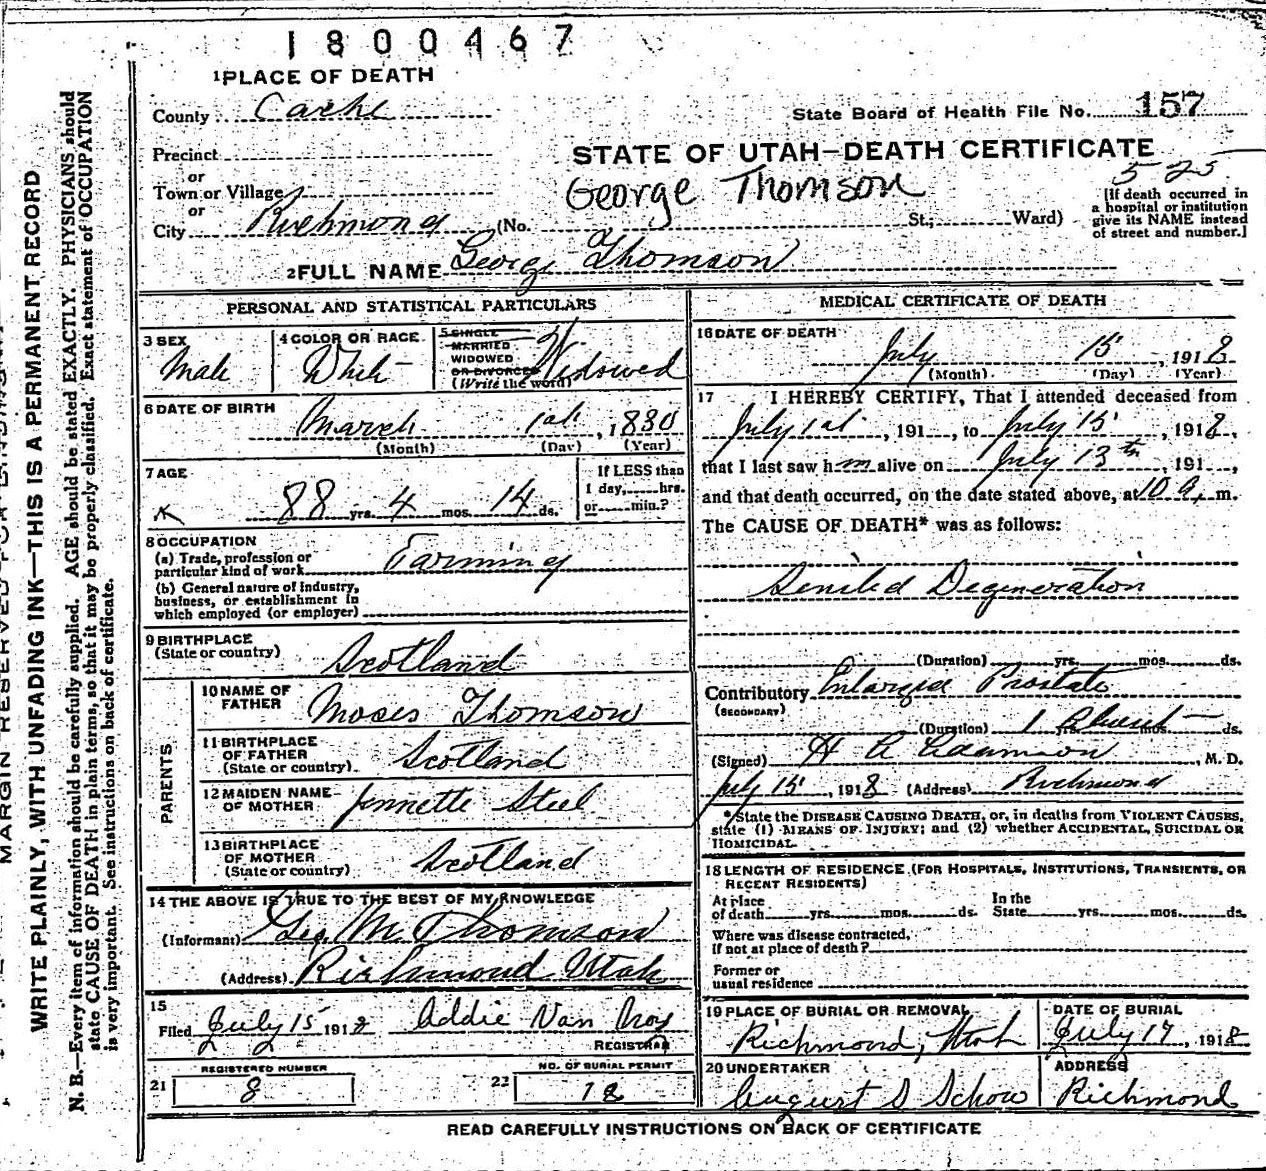 1800467
1 PLACE OF DEATH
County Cache
State Board of Health File No. 157
Precinct
STATE OF UTAH—DEATH CERTIFICATE
or
Town or Village
George Thomson
525
or
City Richmond (No. St; Ward)
[If death occurred in
a hospital or institution
give its NAME instead
of street and number.]
2 FULL NAME George Thomson
PERSONAL AND STATISTICAL PARTICULARS
3 SEX
Male
4 COLOR OR RACE
White
5 SINGLE
MARRIED
WIDOWED
OR DIVORCED
(Write the word)
Widowed
6 DATE OF BIRTH
March 1st, 1830
(Month) (Day) (Year)
7 AGE
88 yrs. 4 mos. 14 ds.
If LESS than
1 day, hrs.
or min.?
8 OCCUPATION
(a) Trade, profession or
particular kind of work Farming
(b) General nature of industry,
business, or establishment in
which employed (or employer)
9 BIRTHPLACE
(State or country)
Scotland
PARENTS
10 NAME OF
FATHER
Moses Thomson
11 BIRTHPLACE
OF FATHER
(State or country)
Scotland
12 MAIDEN NAME
OF MOTHER
Jennette Steel
13 BIRTHPLACE
OF MOTHER
(State or country)
Scotland
14 THE ABOVE IS TRUE TO THE BEST OF MY KNOWLEDGE
(Informant) Geo. M. Thomson
(Address) Richmond Utah
15
Filed July 15 1918 Addie Van Noy
REGISTRAR
REGISTERED NUMBER
21 8
NO. OF BURIAL PERMIT
22 18
MEDICAL CERTIFICATE OF DEATH
16 DATE OF DEATH
July 15, 1918
(Month) (Day) (Year)
17 I HEREBY CERTIFY, That I attended deceased from
July 1st, 191, to July 15, 1918,
that I last saw him alive on July 13th, 191,
and that death occurred, on the date stated above, at 10 a. m.
The CAUSE OF DEATH* was as follows:
Seniled Degeneration
(Duration) yrs. mos. ds.
Contributory Enlarged Prostate
(SECONDARY)
(Duration) 1 yrs. mos. ds.
(Signed) H A Adamson, M. D.
July 15, 1918 (Address) Richmond
*State the DISEASE CAUSING DEATH, or, in deaths from VIOLENT CAUSES,
state (1) MEANS OF INJURY; and (2) whether ACCIDENTAL, SUICIDAL OR
HOMICIDAL.
18 LENGTH OF RESIDENCE (FOR HOSPITALS, INSTITUTIONS, TRANSIENTS, OR
RECENT RESIDENTS)
At place
of death yrs. mos. ds.
In the
State yrs. mos. ds.
Where was disease contracted,
if not at place of death?
Former or
usual residence
19 PLACE OF BURIAL OR REMOVAL
Richmond, Utah
DATE OF BURIAL
July 17, 1918
20 UNDERTAKER
August S Schow
ADDRESS
Richmond
READ CAREFULLY INSTRUCTIONS ON BACK OF CERTIFICATE
MARGIN RESERVED FOR BINDING
WRITE PLAINLY, WITH UNFADING INK—THIS IS A PERMANENT RECORD
N. B.—Every item of information should be carefully supplied. AGE should be stated EXACTLY. PHYSICIANS should
state CAUSE OF DEATH in plain terms, so that it may be properly classified. Exact statement of OCCUPATION
is very important. See instructions on back of certificate.